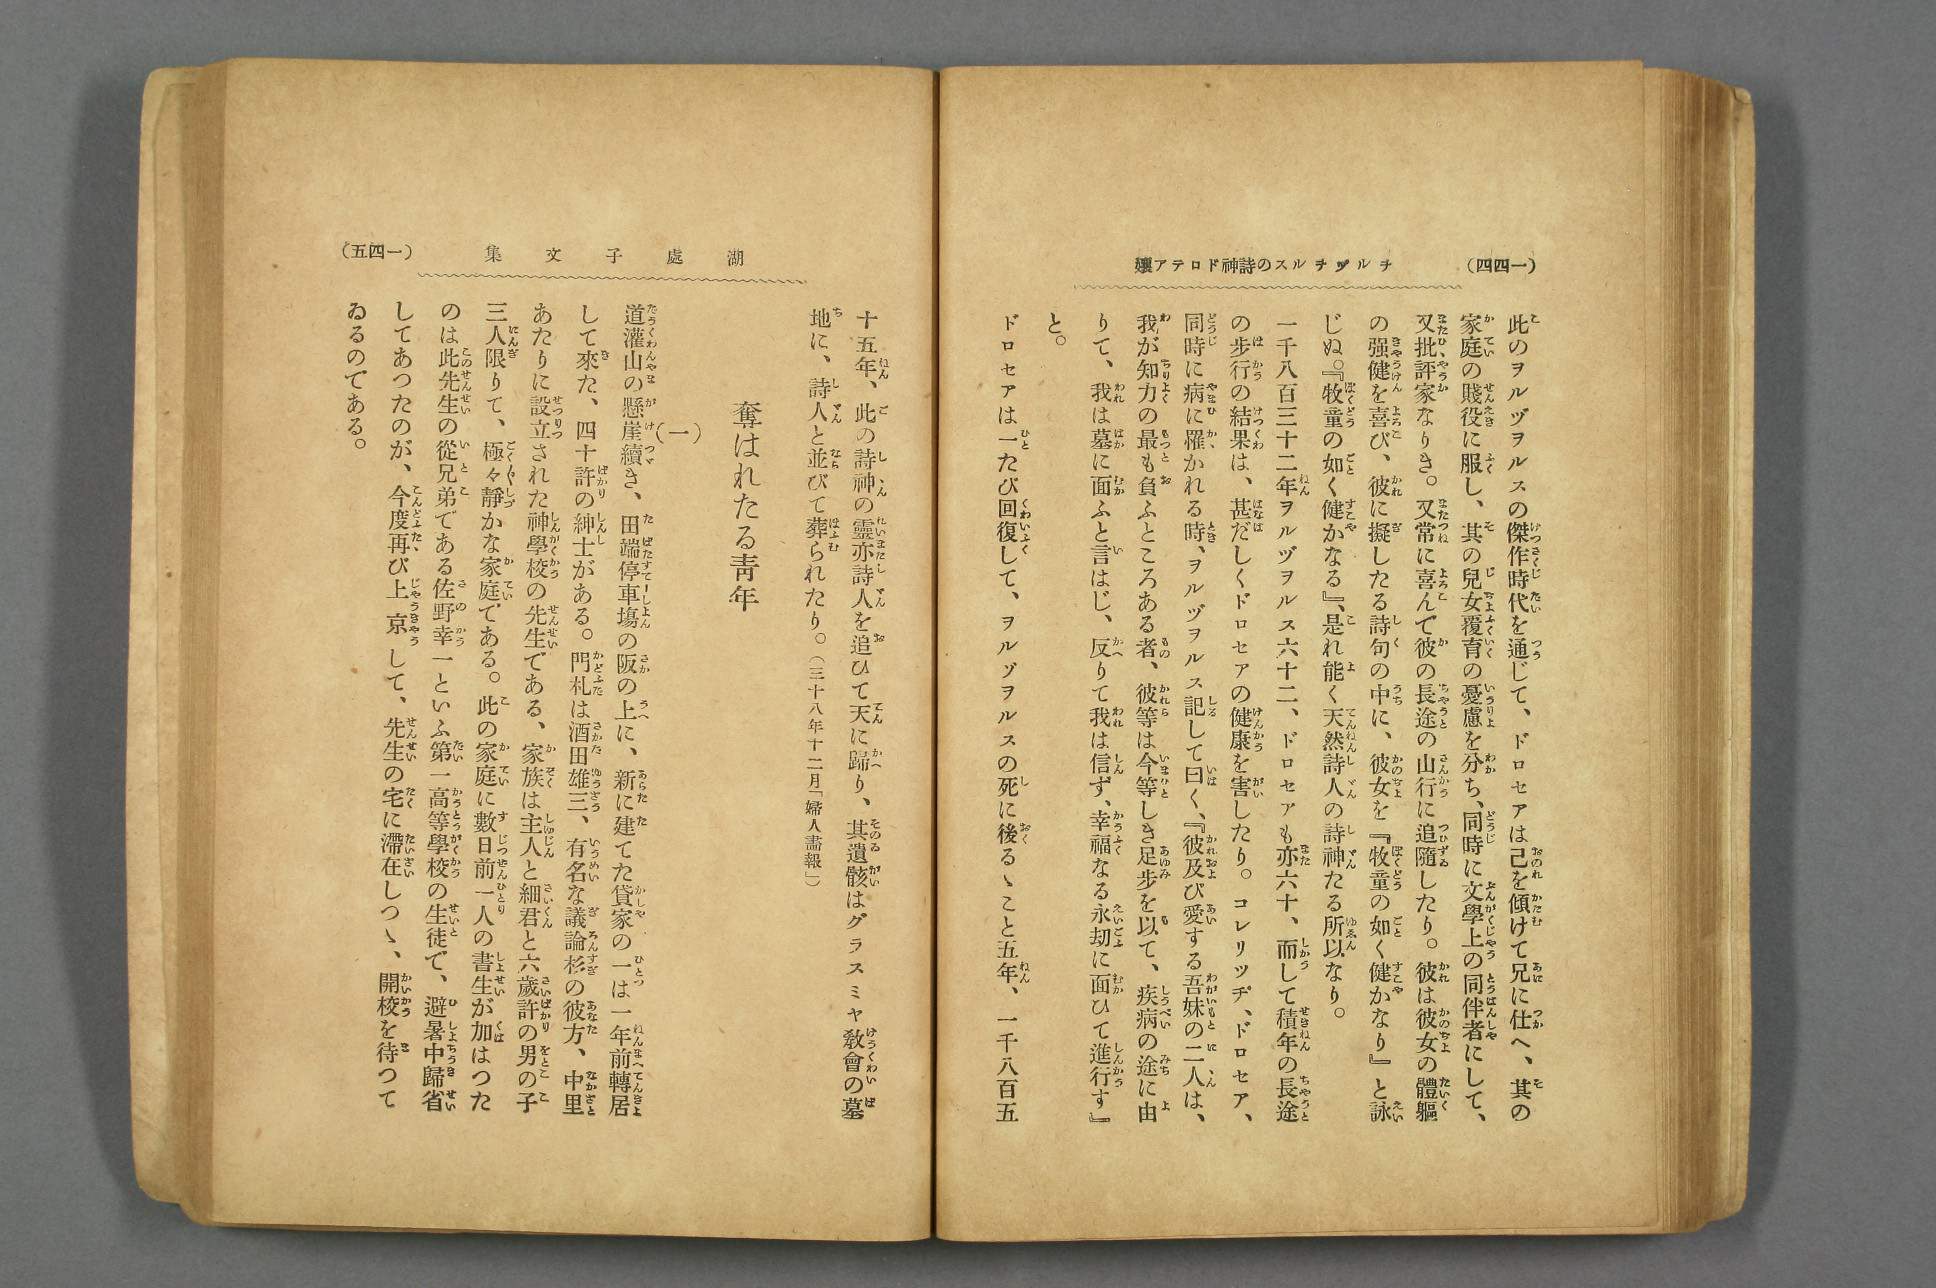 (一四四)
チルヅチルスの詩神ドロテア孃
此のヲルヅヲルスの傑作時代を通じて、ドロセアは己を傾けて兄に仕へ、其の
家庭の賤役に服し、其の兒女覆育の憂慮を分ち、同時に文學上の同伴者にして、
又批評家なりき。又常に喜んで彼の長途の山行に追隨したり。彼は彼女の體軀
の强健を喜び、彼に擬したる詩句の中に、彼女を『牧童の如く健かなり』と詠
じぬ。『牧童の如く健かなる』、是れ能く天然詩人の詩神たる所以なり。
一千八百三十二年ヲルヅヲルス六十二、ドロセアも亦六十、而して積年の長途
の步行の結果は、甚だしくドロセアの健康を害したり。コレリッヂ、ドロセア、
同時に病に罹かれる時、ヲルヅヲルス記して曰く、『彼及び愛する吾妹の二人は、
我が知力の最も負ふところある者、彼等は今等しき足步を以て、疾病の途に由
りて、我は墓に面ふと言はじ、反りて我は信ず、幸福なる永劫に面ひて進行す』
と。
ドロセアは一たび回復して、ヲルヅヲルスの死に後るゝこと五年、一千八百五
湖處子文集
(一四五)
十五年、此の詩神の靈亦詩人を追ひて天に歸り、其遺骸はグラスミヤ敎會の墓
地に、詩人と並びて葬られたり。(三十八年十二月「婦人畵報」)
奪はれたる靑年
(一)
道灌山の懸崖續き、田端停車場の阪の上に、新に建てた貸家の一は一年前轉居
して來た、四十許の紳士がある。門札は酒田雄三、有名な議論杉の彼方、中里
あたりに設立された神學校の先生である、家族は主人と細君と六歲許の男の子
三人限りて、極々靜かな家庭である。此の家庭に數日前一人の書生が加はつた
のは此先生の從兄弟である佐野幸一といふ第一高等學校の生徒で、避暑中歸省
してあつたのが、今度再び上京して、先生の宅に滯在しつゝ、開校を待つて
ゐるのである。